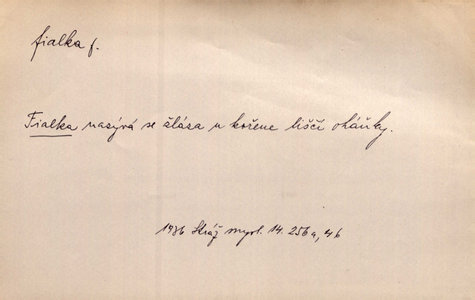 fialka f.
Fialka nazývá se žláza u kořene liščí oháňky.
1936 Stráž mysl. 14. 256a, 4b